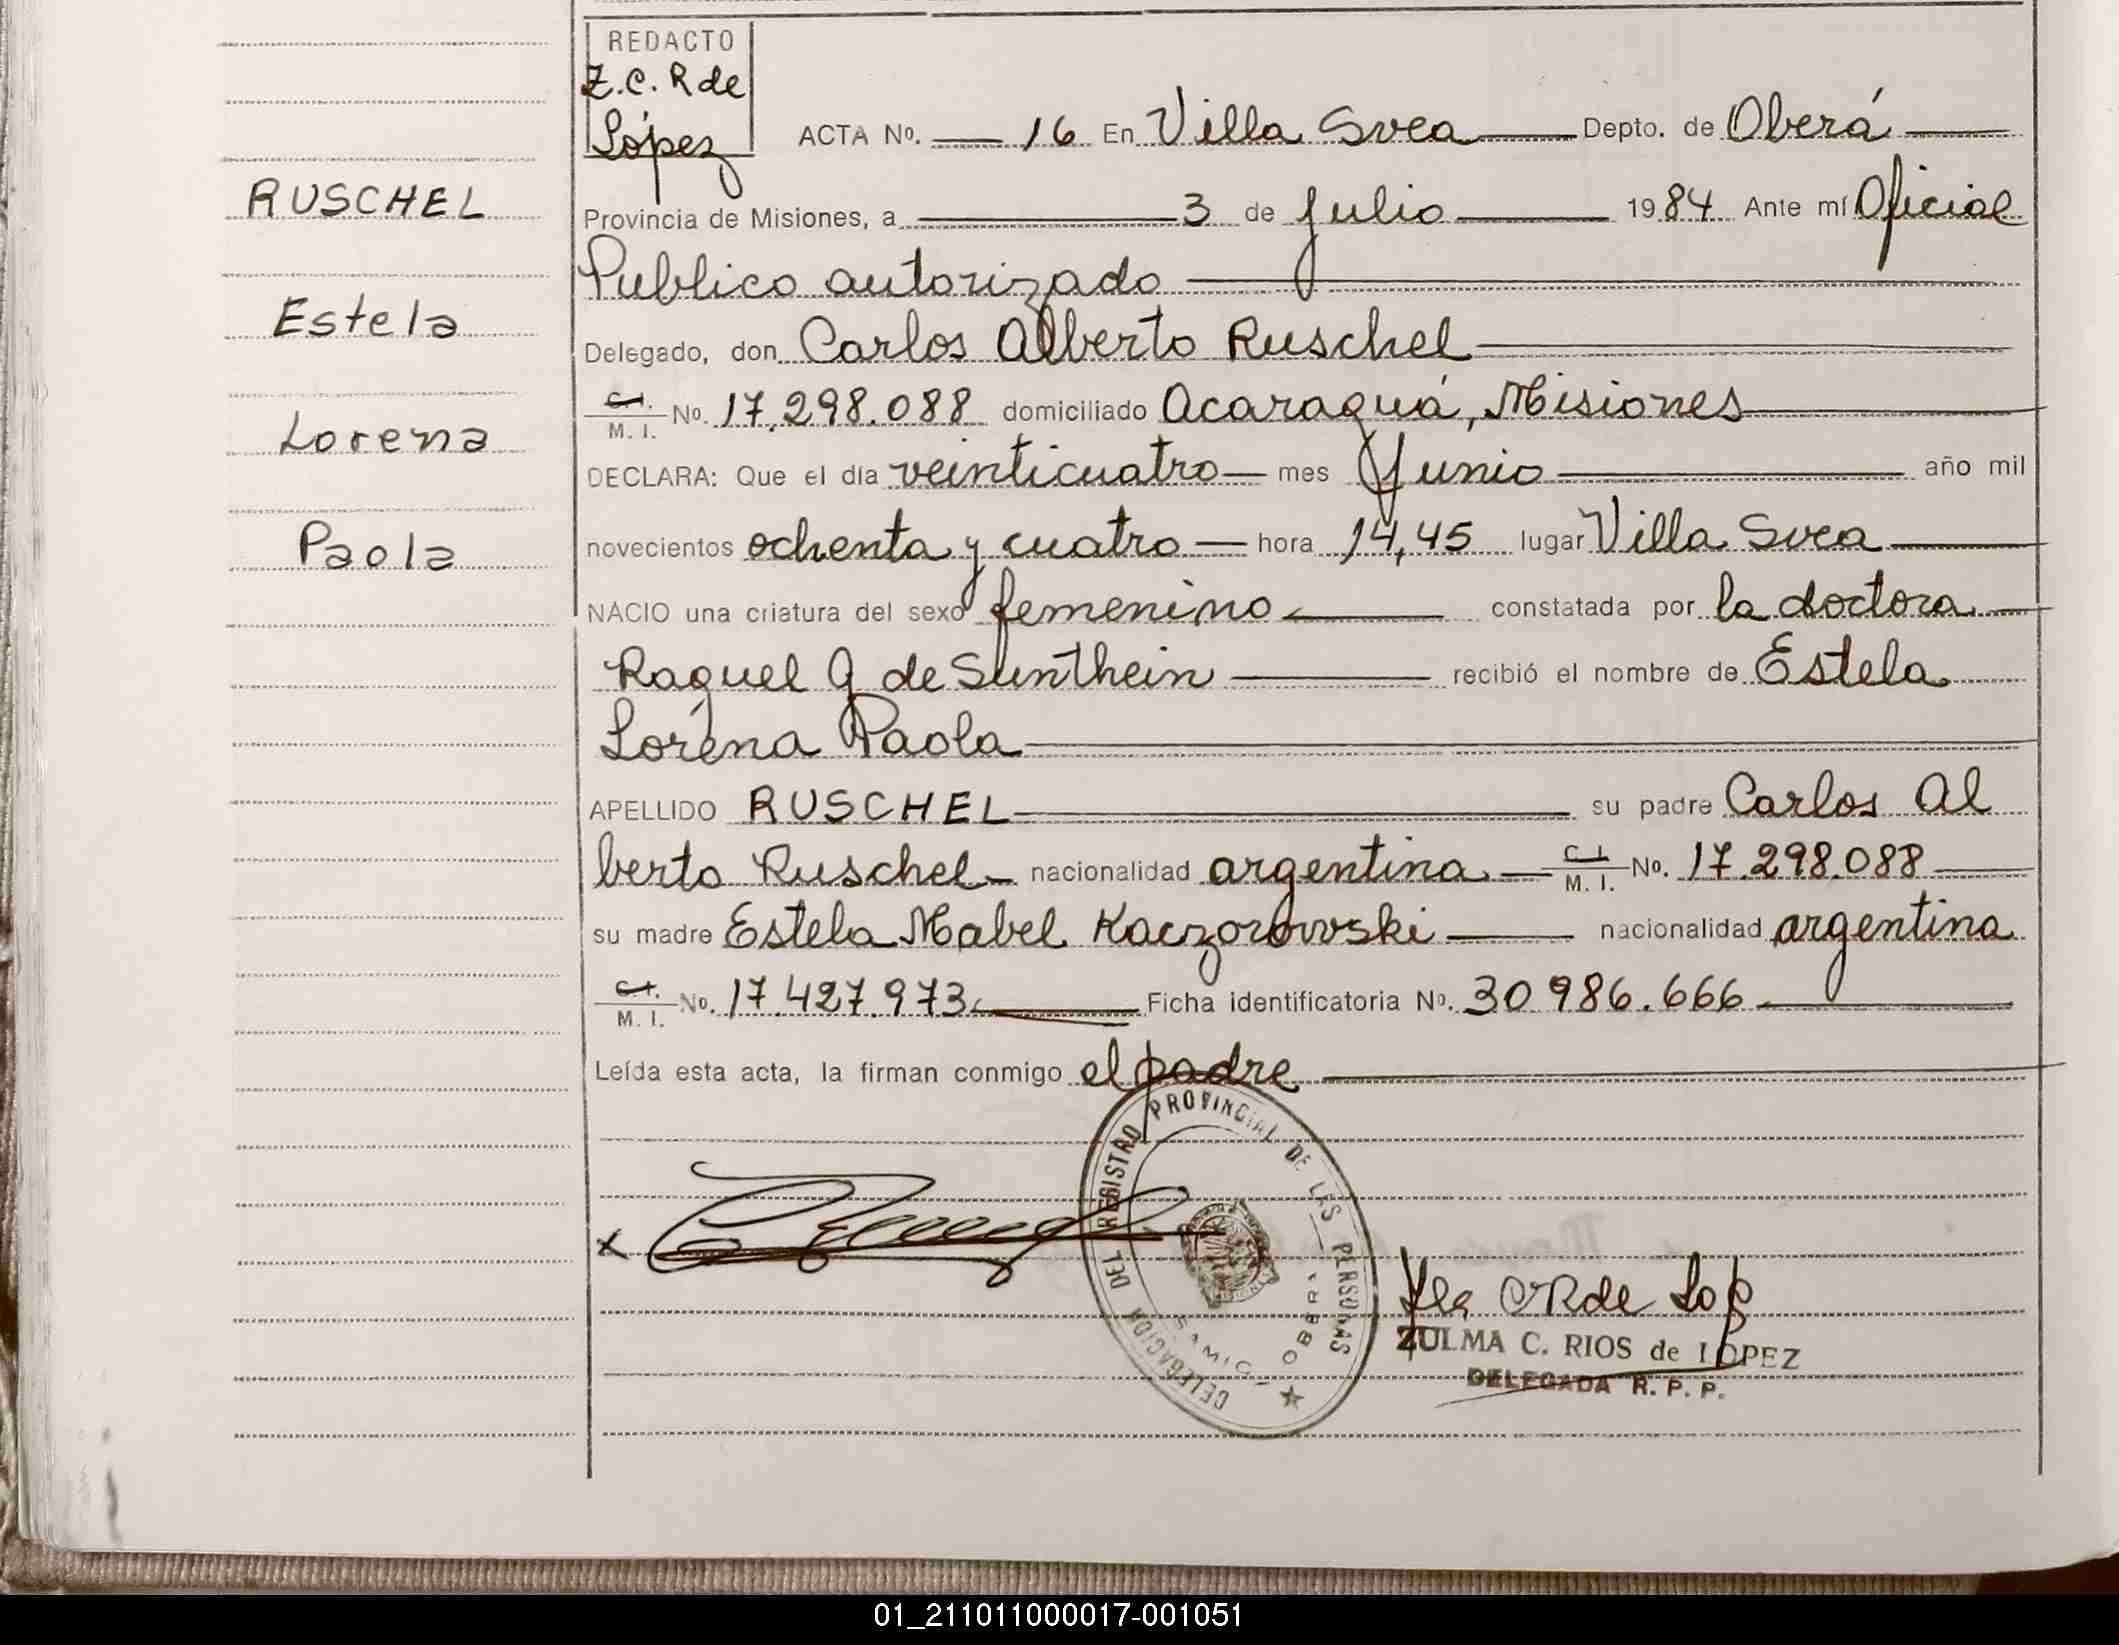 REDACTO
Z.C. R de
López
ACTA Nº. 16 En Villa Svea Depto. de Oberá
Provincia de Misiones, a 3 de Julio 1984 Ante mí Oficial
Publico autorizado
Delegado, don Carlos Alberto Ruschel
C.I.
M. I. Nº. 17.298.088 domiciliado Acaraguá, Misiones
DECLARA: Que el día veinticuatro mes Junio año mil
novecientos ochenta y cuatro hora 14,45 lugar Villa Svea
NACIO una criatura del sexo femenino constatada por la doctora
Raquel G de Sunthein recibió el nombre de Estela
Lorena Paola
APELLIDO RUSCHEL su padre Carlos Al
berto Ruschel nacionalidad argentina C.I. M. I. Nº. 17.298.088
su madre Estela Mabel Kaczorowski nacionalidad argentina
C.I.
M. I. Nº. 17.427.973 Ficha identificatoria Nº. 30.986.666
Leída esta acta, la firman conmigo el padre
RUSCHEL
Estela
Lorena
Paola
x
DELEGACION DEL REGISTRO PROVINCIAL DE LAS PERSONAS
OBERA
ZULMA C. RIOS de LOPEZ
DELEGADA R. P. P.
01_211011000017-001051